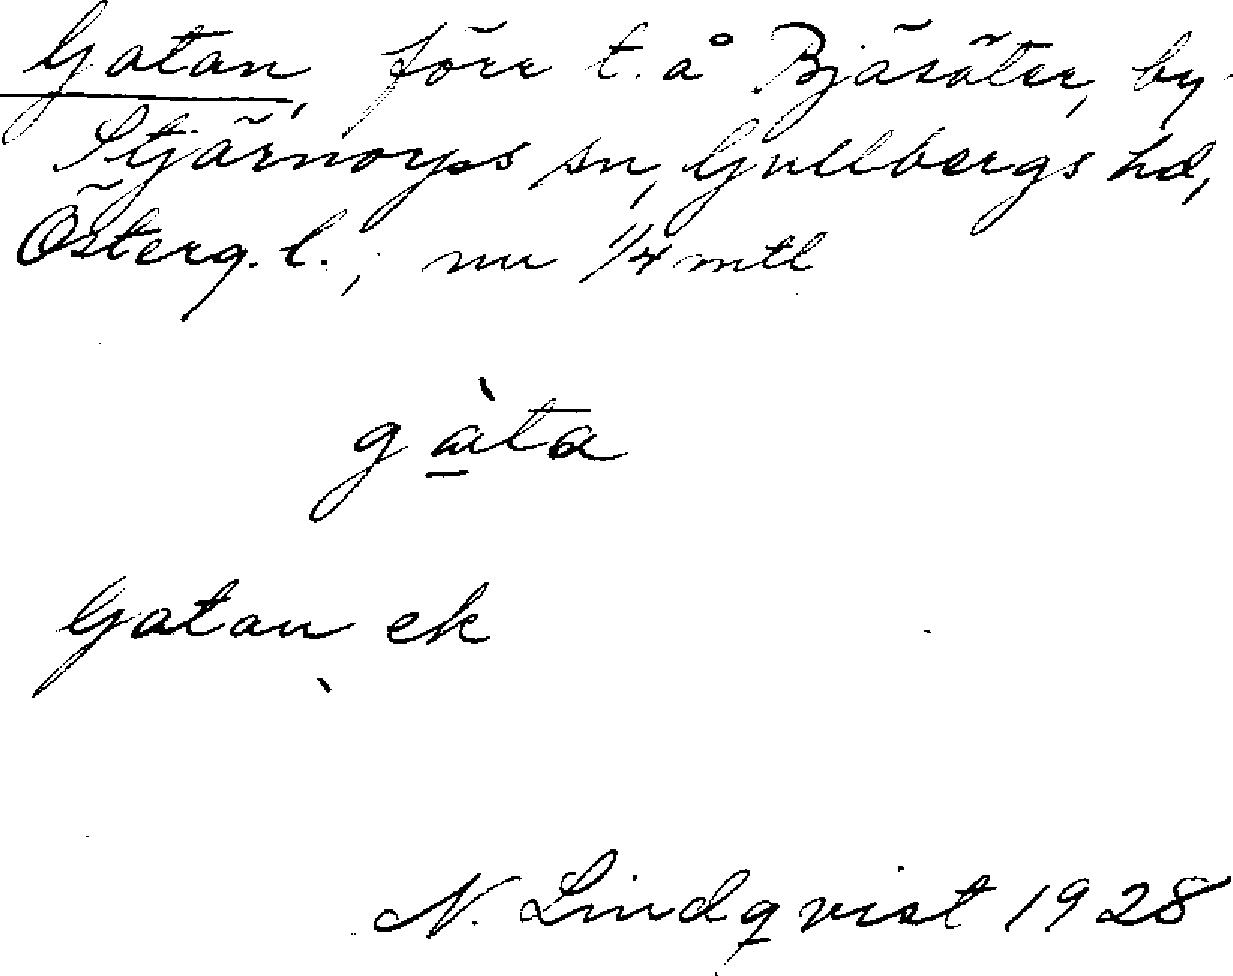 Gatan, förr t. å Bjäsäter, by
Stjärnorps sn, Gullbergs hd,
Österg. l.; nu 1/4 mtl
gàta
Gatan ek
N. Lindqvist 1928